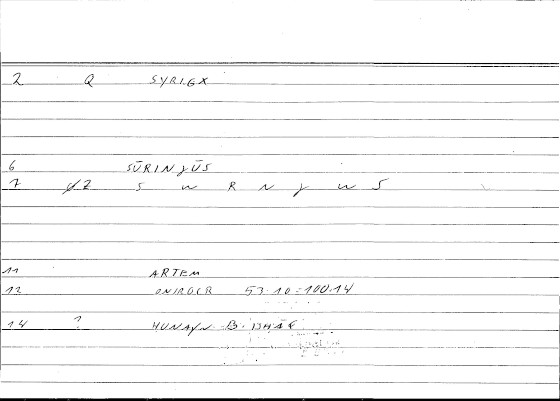 2 Q SYRIGX
6 SŪRINɣŪS
7 S W R N Y W S
11 ARTEM
12 ONIROCR 53.10=100.14
14 ? HUNAYN B. ISH